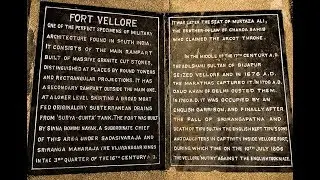 FORT VELLORE
ONE OF THE PERFECT SPECIMENS OF MILITARY
ARCHITECTURE FOUND IN SOUTH INDIA.
IT CONSISTS OF THE MAIN RAMPART
BUILT OF MASSIVE GRANITE CUT STONES,
DISTINGUISHED AT PLACES BY ROUND TOWERS
AND RECTRANGULAR PROJECTIONS. IT HAS
A SECONDARY RAMPART OUTSIDE THE MAIN ONE
AT A LOWER LEVEL SKIRTING A BROAD MOAT
FED ORIGINALLY SUBTERRANEAN DRAINS
FROM 'SURYA-GUNTA' TANK. THE FORT WAS BUILT
BY SINNA BOMMI NAYAK, A SUBORDINATE CHIEF
OF THIS AREA UNDER SADASIVARAJA AND
SRIRANGA MAHARAJA (THE VIJAYANAGAR KINGS
IN THE 3RD QUARTER OF THE 16TH CENTURY A.D.
IT WAS LATER THE SEAT OF MURTAZA ALI,
THE BROTHER-IN-LAW OF CHANDA SAHIB
WHO CLAIMED THE ARCOT THRONE.
IN THE MIDDLE OF THE 17TH CENTURY A.D.
THE SULTAN OF BIJAPUR
SEIZED VELLORE AND IN 1676 A.D.
THE MARATHAS CAPTURED IT
DAUD KHAN OF DELHI OUSTED THEM.
IN A.D. IT WAS OCCUPIED BY AN
ENGLISH GARRISON, AND FINALLY AFTER
THE FALL OF SRIRANGAPATNA AND
DEATH OF TIPU SULTAN THE ENGLISH KEPT TIPU'S SONS
AND DAUGHTERS IN CAPTIVITY INSIDE VELLORE FORT,
DURING WHICH TIME ON THE 10TH JULY 1806
THE VELLORE MUTINY AGAINST THE ENGLISH TOOK PLACE.